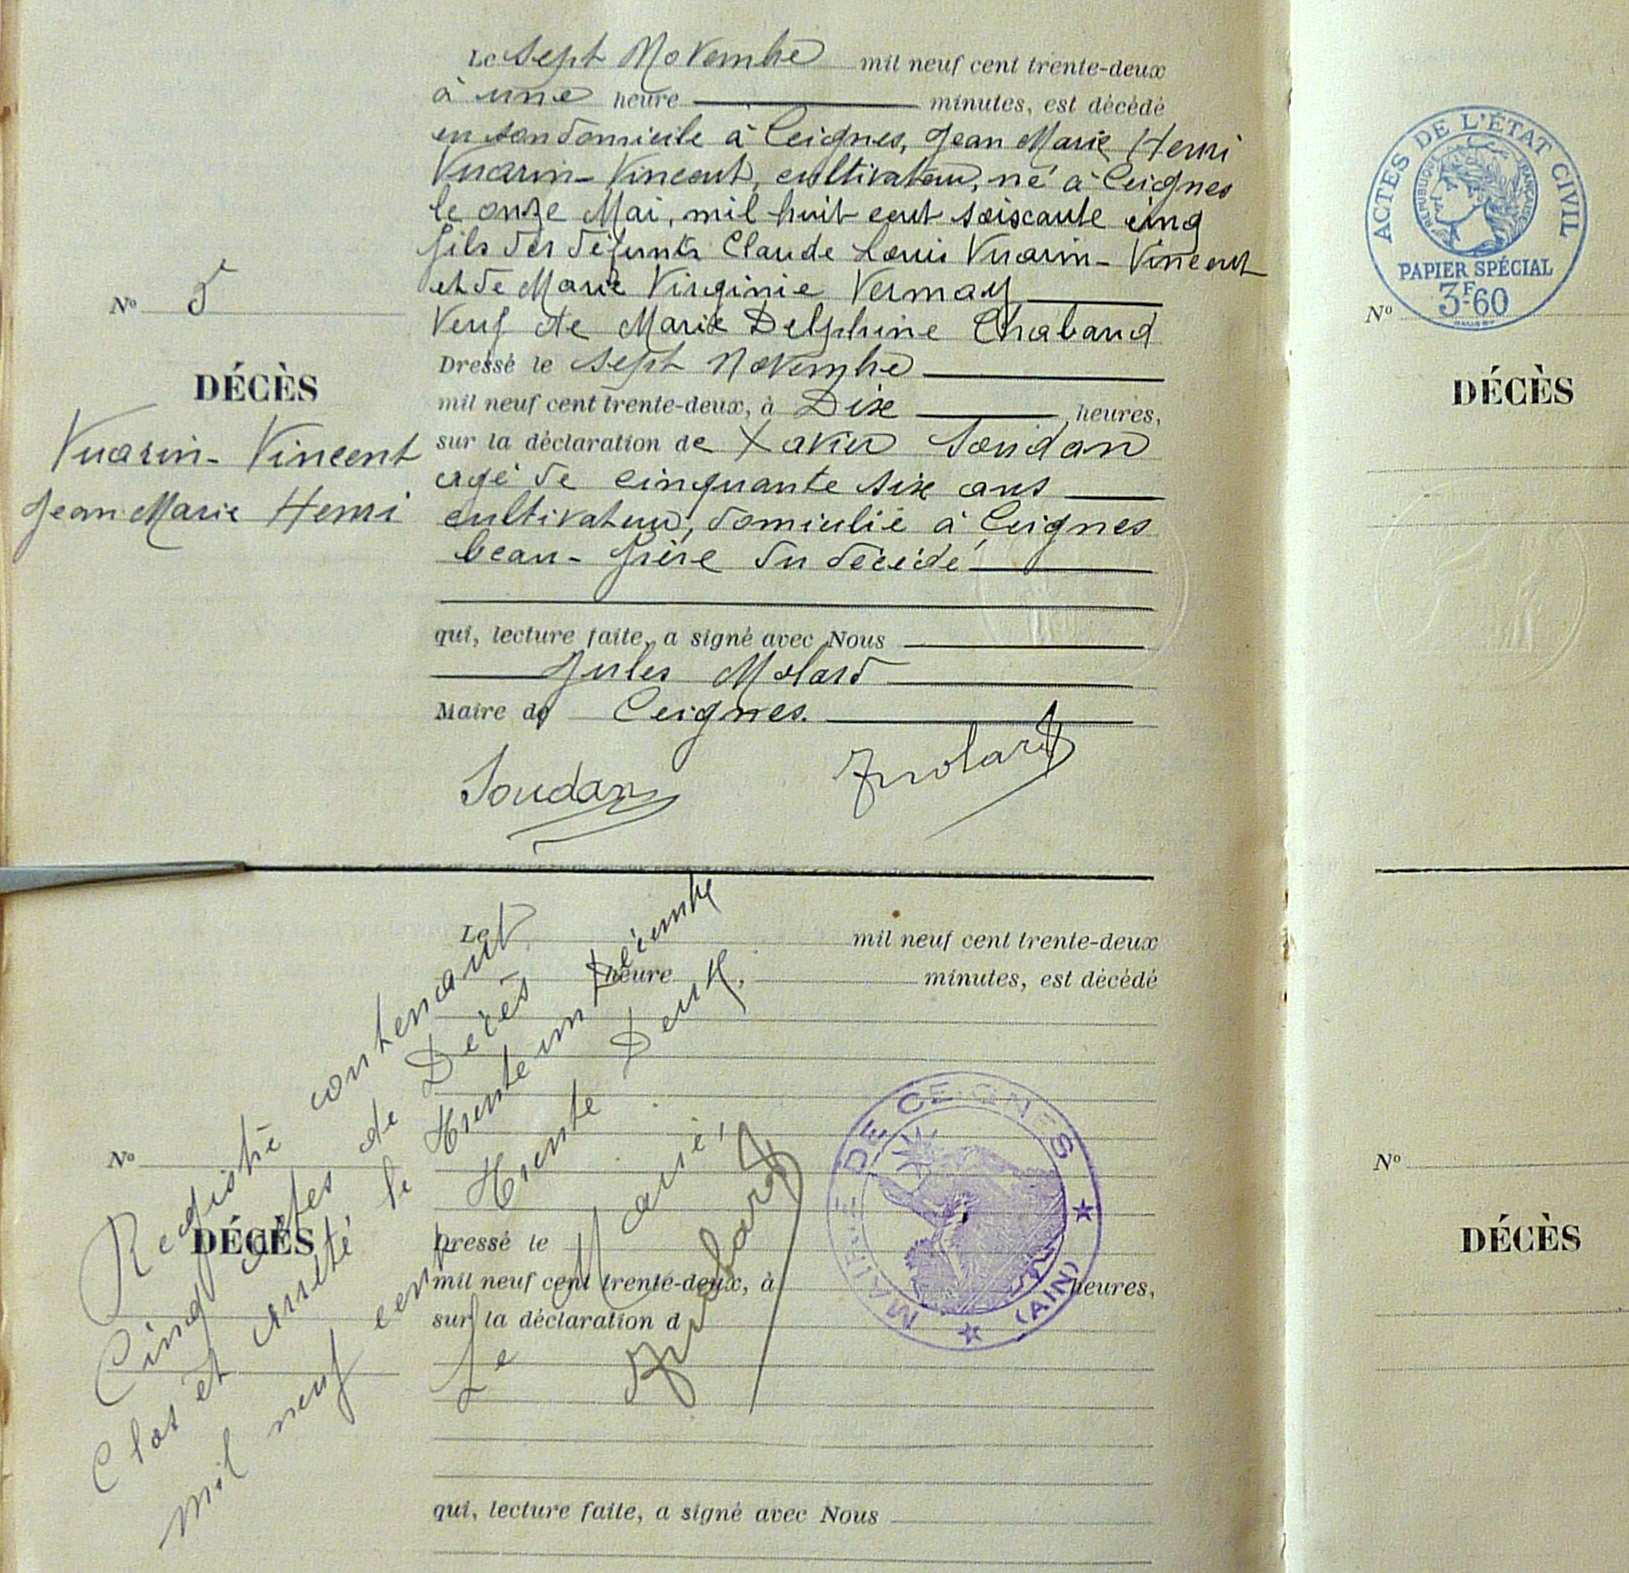 Le sept Novembre mil neuf cent trente-deux
à une heure minutes, est décédé
en son domicile à Ceignes, Jean Marie Henri
Vuarin-Vincent, cultivateur, né à Ceignes
le onze Mai, mil huit cent soiscante cinq
fils des défunts Claude Louis Vuarin-Vincent
et de Marie Virginie Vermay
Veuf de Marie Delphine Chaband
Dressé le sept Novembre
mil neuf cent trente-deux, à Dix heures,
sur la déclaration de Xavier Soudan
agé de cinquante six ans
cultivateur, domicilié à Ceignes
beau-frère du décédé
qui, lecture faite, a signé avec Nous
Jules Molard
Maire de Ceignes.
Soudan
JMolard
No 5
DÉCÈS
Vuarin-Vincent
Jean Marie Henri
Le mil neuf cent trente-deux
heure minutes, est décédé
No
DÉCÈS
Dressé le
mil neuf cent trente-deux, à heures,
sur la déclaration d
qui, lecture faite, a signé avec Nous
Registre contenant
Cinq actes de Décès
Clos et arrêté le trente un Décembre
mil neuf cent trente Deux.
Le Maire,
JMolard
MAIRIE DE CEIGNES
(AIN)
ACTES DE L'ÉTAT CIVIL
RÉPUBLIQUE FRANÇAISE
PAPIER SPÉCIAL
3F.60
No
DÉCÈS
No
DÉCÈS